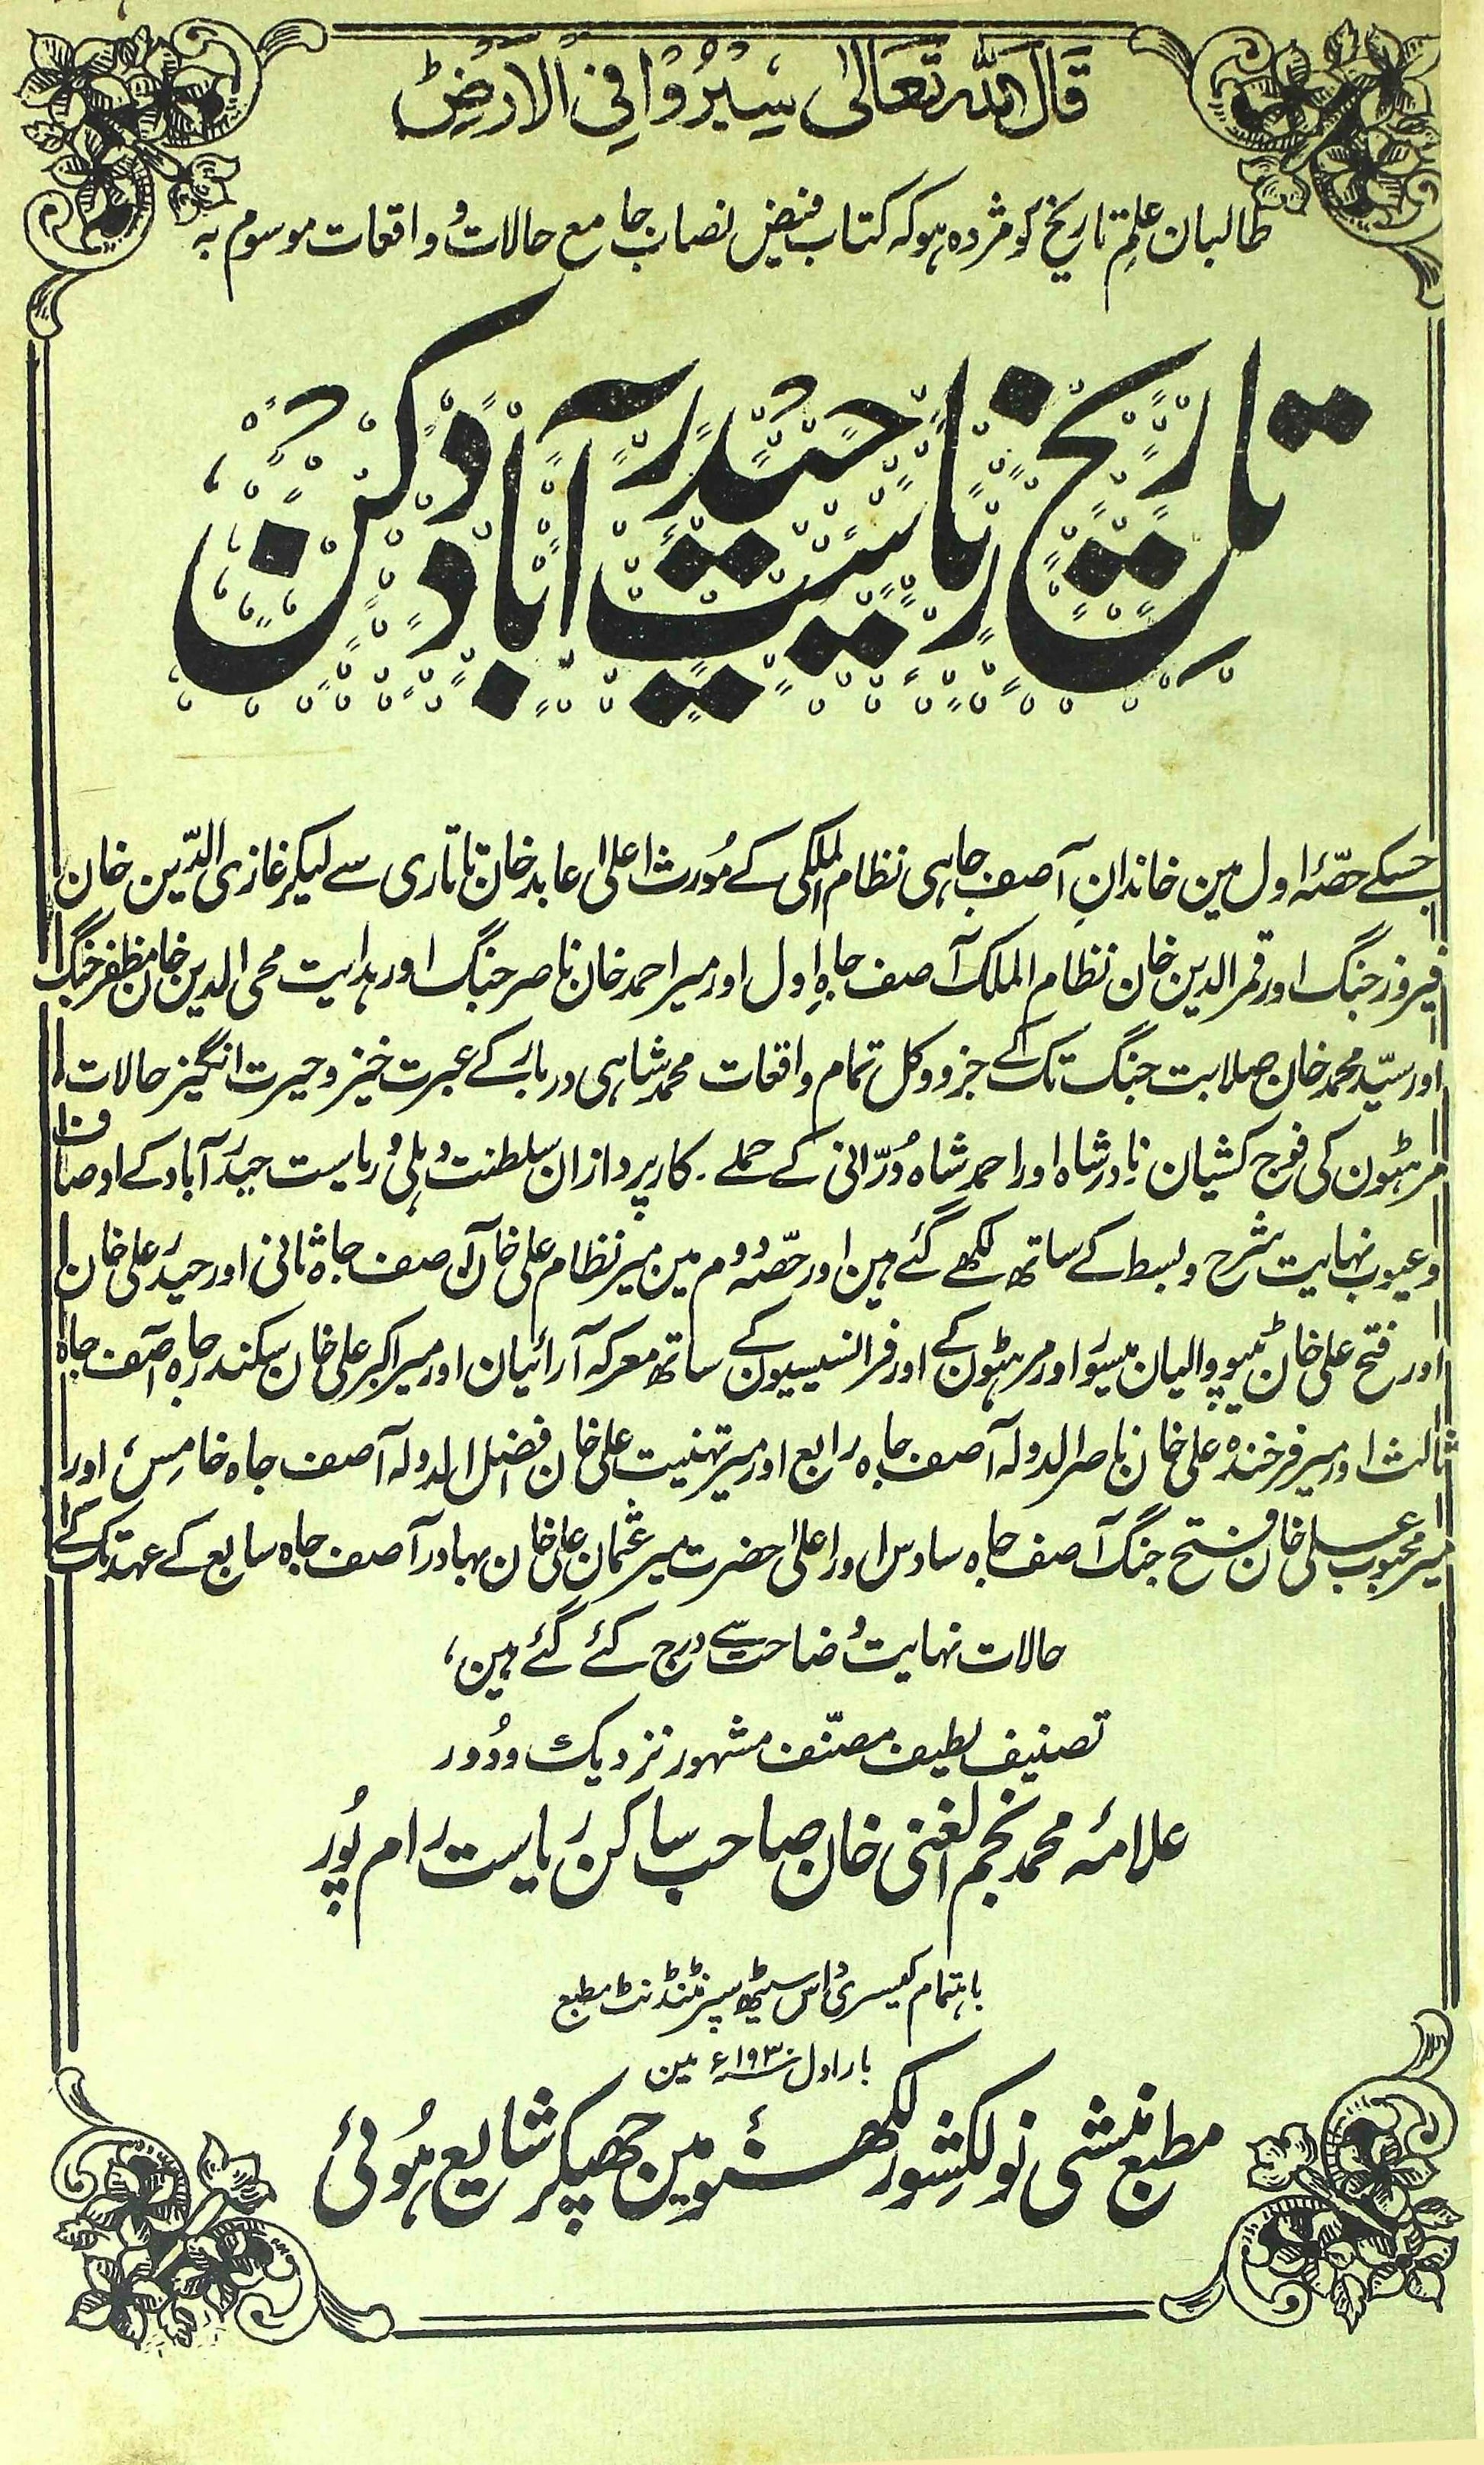 قَالَ اللہ تَعَالیٰ سِیْرُوْا فِی الْاَرْضِ
طالبان علمِ تاریخ کو مژدہ ہو کہ کتاب فیض نصاب جامع حالات و واقعات موسوم بہ
تاریخ ریاست حیدرآباد دکن
جسکے حصّۂ اول مین خاندانِ آصف جاہی نظام الملکی کے مُورث اعلیٰ عابد خان تاتاری سے لیکر غازی الدّین خان
فیروز جنگ اور قمر الدین خان نظام الملک آصف جاہِ اول اور میر احمد خان ناصر جنگ اور ہدایت محی الدین خان مظفر جنگ
اور سیّد محمد خان صلابت جنگ تک کے جزو وکل تمام واقعات محمد شاہی دربار کے عبرت خیز و حیرت انگیز حالات
مرہٹون کی فوج کشیان نادر شاہ اور احمد شاہ دُرّانی کے حملے۔ کارپردازان سلطنت دہلی و ریاست حیدرآباد کے اوصاف
و عیوب نہایت شرح و بسط کے ساتھ لکھے گئے ہین اور حصّہ دوم مین میر نظام علی خان آصف جاہ ثانی اور حیدر علی خان
اور فتح علی خان ٹیپو والیان میسور اور مرہٹون کے اور فرانسیسیون کے ساتھ معرکہ آرائیان اور میر اکبر علی خان سکندر جاہ آصف جاہ
ثالث اور میر فرخندہ علی خان ناصر الدولہ آصف جاہ رابع اور میر تہنیت علی خان افضل الدولہ آصف جاہ خامس، اور
میر محبوب علی خان فتح جنگ آصف جاہ سادس اور اعلیٰ حضرت میر عثمان علی خان بہادر آصف جاہ سابع کے عہد تک کے
حالات نہایت وضاحت سے درج کئے گئے ہین،
تصنیف لطیف مصنّف مشہور نزدیک و دُور
علامہ محمد نجم الغنی خان صاحب ساکن ریاست رام پُور
باہتمام کیسری داس سیٹھ سپرنٹنڈنٹ مطبع
بار اول ۱۹۳۰ء مین
مطبع منشی نولکشور لکھنؤ مین چھپکر شایع ہُوئی